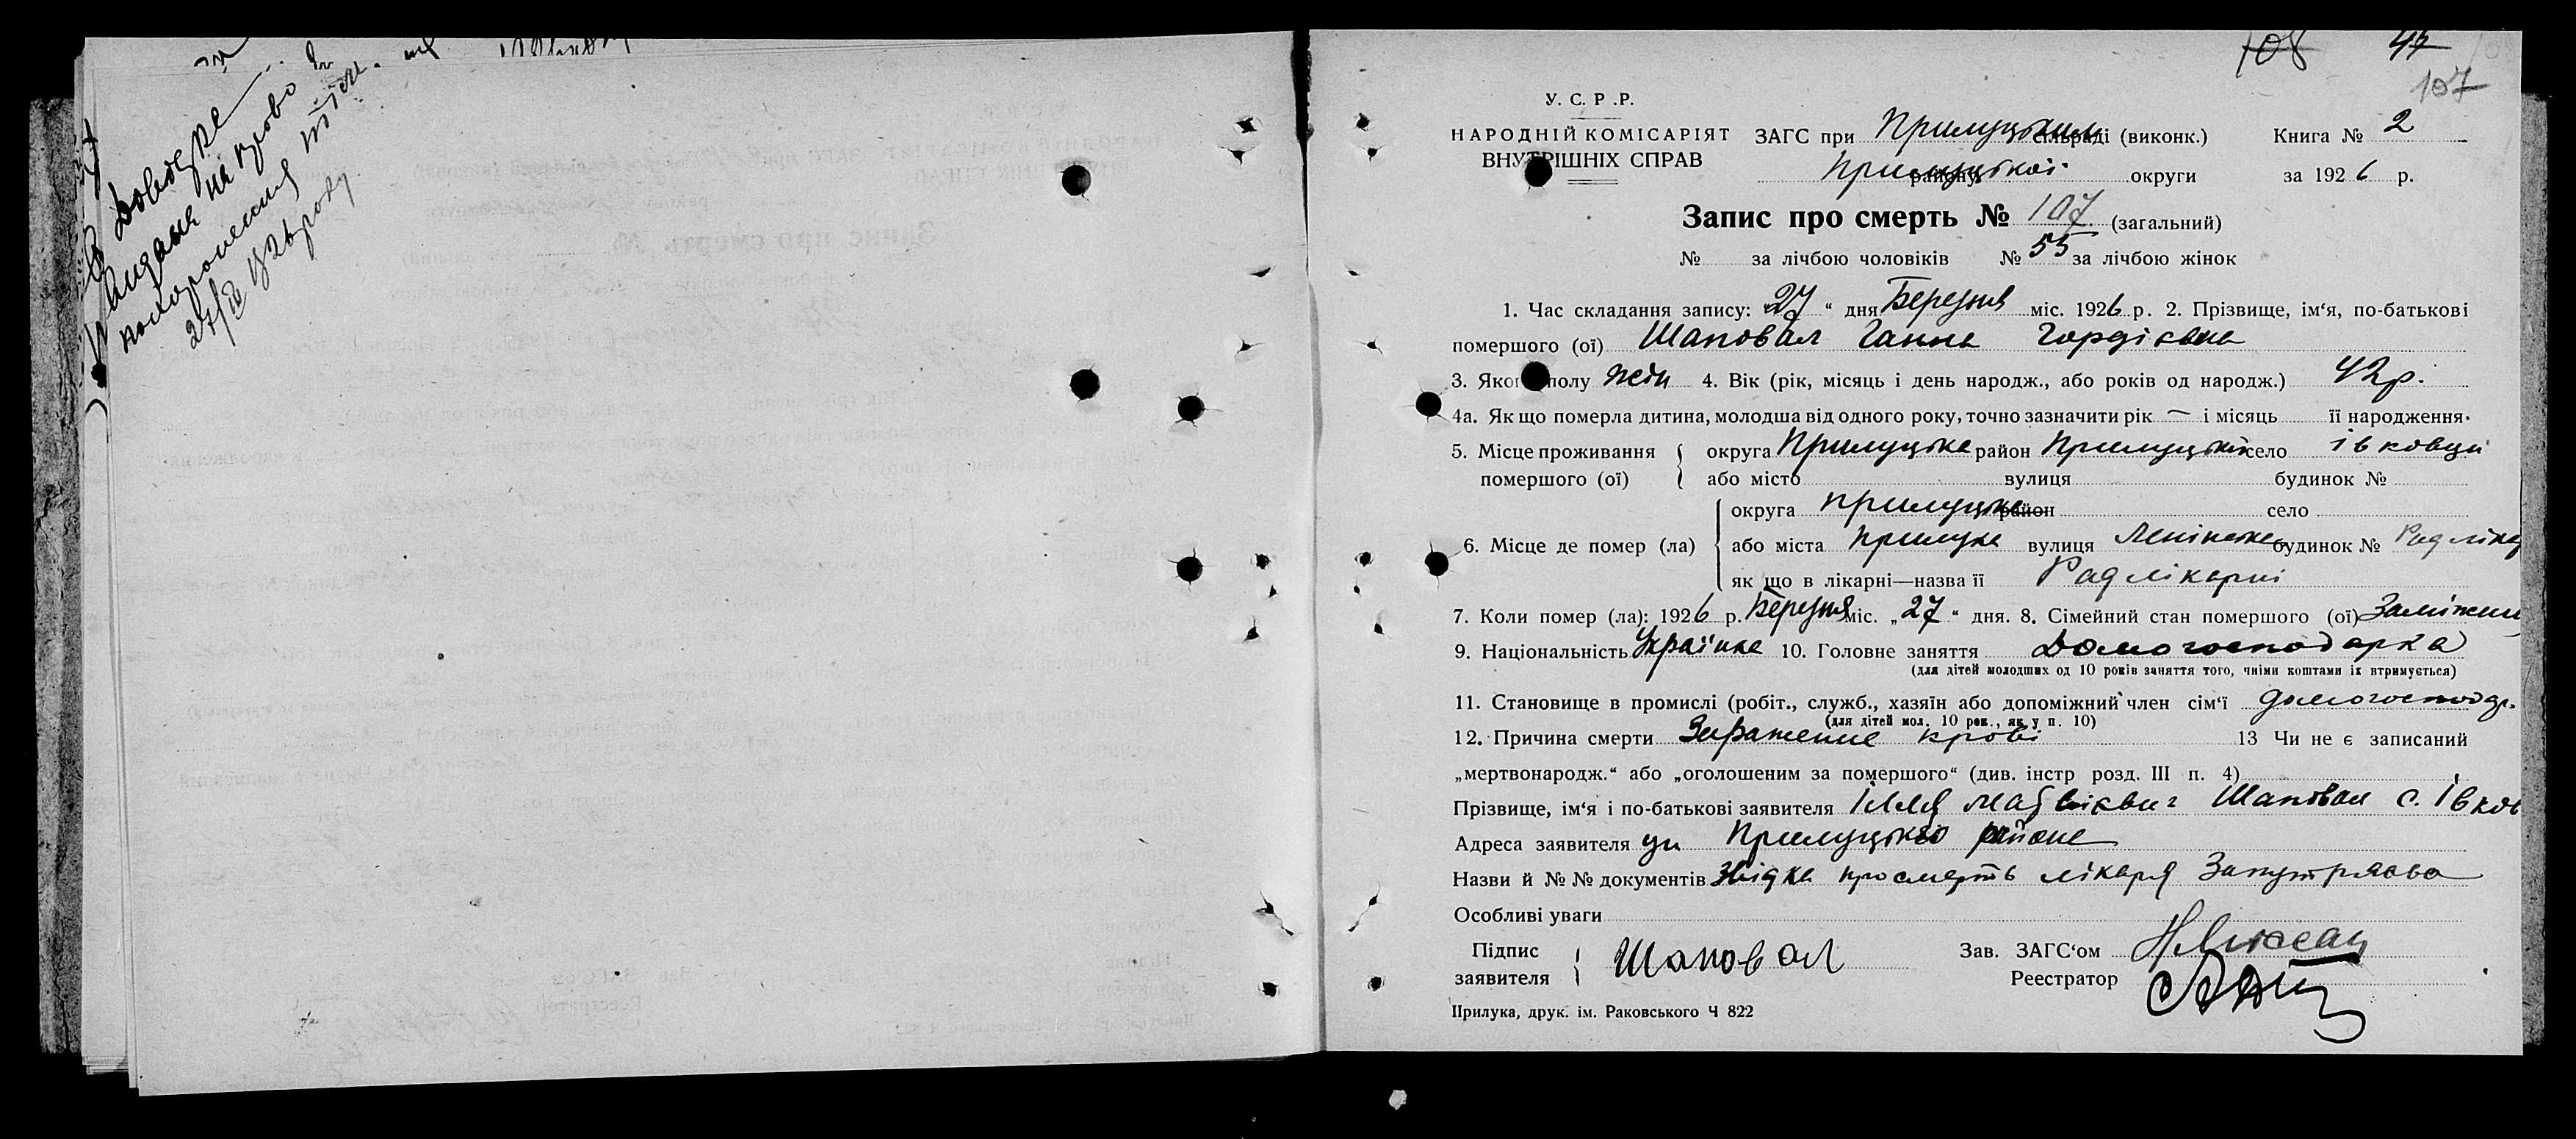 Довідка
видана на право
похоронення тіла
27/III 1926 року
108 47
107
У. С. Р .Р.
НАРОДНІЙ КОМІСАРІЯТ
ВНУТРІШНІХ СПРАВ
ЗАГС при Прилуцьким сільраді (виконк.) Книга № 2
Прилуцької району округи за 1926 р.
Запис про смерть № 107 (загальний)
№ за лічбою чоловіків № 55 за лічбою жінок
1. Час складання запису: „27“ дня Березня міс. 1926 р. 2. Прізвище, ім‘я, по-батькові
помершого (ої) Шаповал Ганна Гордієвна
3. Якого полу жін 4. Вік (рік, місяць і день народж., або років од народж.) 42р.
4а. Якщо померла дитина, молодша від одного року, точно зазначити рік — і місяць її народження.
5. Місце проживання помершого (ої) { округа Прилуцька район Прилуцький село Івковци
або місто вулиця будинок №
6. Місце де помер (ла) { округа Прилуцька район село
або міста Прилука вулиця Ленінська будинок № Радлікар
як що в лікарні—назва її Радлікарні
7. Коли помер (ла): 1926 р. Березня міс. „27“ дня. 8. Сімейний стан помершого (ої) Заміжня
9. Національність Українка 10. Головне заняття Домогосподарка
(для дітей молодших од 10 років заняття того, чиїми коштами їх втримується)
11. Становище в промислі (робіт., служб., хазяїн або допоміжний член сім‘ї домогосподар.
(для дітей мол. 10 рок., як у п. 10)
12. Причина смерти Заражение крові 13 Чи не є записаний
„мертвонародж.“ або „оголошеним за помершого“ (див. інстр розд. III п. 4)
Прізвище, ім‘я і по-батькові заявителя Ілля Матвієвич Шаповал с. Івков
Адреса заявителя ци Прилуцького району
Назви й №№ документів Звідка про смерть лікаря
Особливі уваги
Підпис заявителя { Шаповал
Зав. ЗАГС‘ом
Реестратор
Прилука, друк. ім. Раковського Ч 822